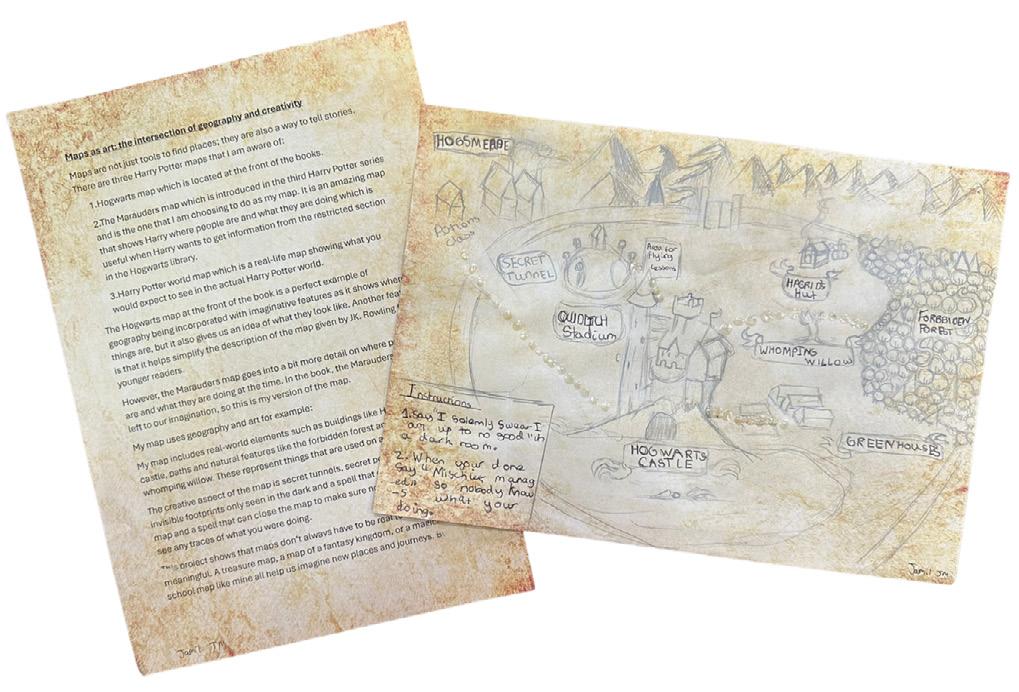 Maps as art: the intersection of geography and creativity
Maps are not just tools to find places; they are also a way to tell stories.
There are three Harry Potter maps that I am aware of:
1.Hogwarts map which is located at the front of the books.
2.The Marauders map which is introduced in the third Harry Potter series
and is the one that I am choosing to do as my map. It is an amazing map
that shows Harry where people are and what they are doing which is
useful when Harry wants to get information from the restricted section
in the Hogwarts library.
3.Harry Potter world map which is a real-life map showing what you
would expect to see in the actual Harry Potter world.
The Hogwarts map at the front of the book is a perfect example of
geography being incorporated with imaginative features as it shows where
things are, but it also gives us an idea of what they look like. Another
is that it helps simplify the description of the map given by JK. Rowling
younger readers.
However, the Marauders map goes into a bit more detail on where
are and what they are doing at the time. In the book, the Marauders
left to our imagination, so this is my version of the map.
My map uses geography and art for example:
My map includes real-world elements such as buildings like
castle, paths and natural features like the forbidden forest
whomping willow. These represent things that are used on
The creative aspect of the map is secret tunnels, secret
invisible footprints only seen in the dark and a spell that
map and a spell that can close the map to make sure
see any traces of what you were doing.
project shows that maps don't always have to be
meaningful. A treasure map, a map of a fantasy kingdom, or a
school map like mine all help us imagine new places and journeys.
Jamil JM
HOGSMEADE
Potions
class
SECRET
TUNNEL
Area for
Flying
Lessons
QUIDITCH
Stadium
HAGRIDS
Hut
FORBIDDEN
FOREST
WHOMPING
WILLOW
GREENHOUSES
HOGWARTS
CASTLE
Instructions
1.Say "I solemly swear I
am up to no good" in
a dark room.
2. When your done
say "Mischief manag
ed" so nobody know
-s what your
doing.
Jamil JM